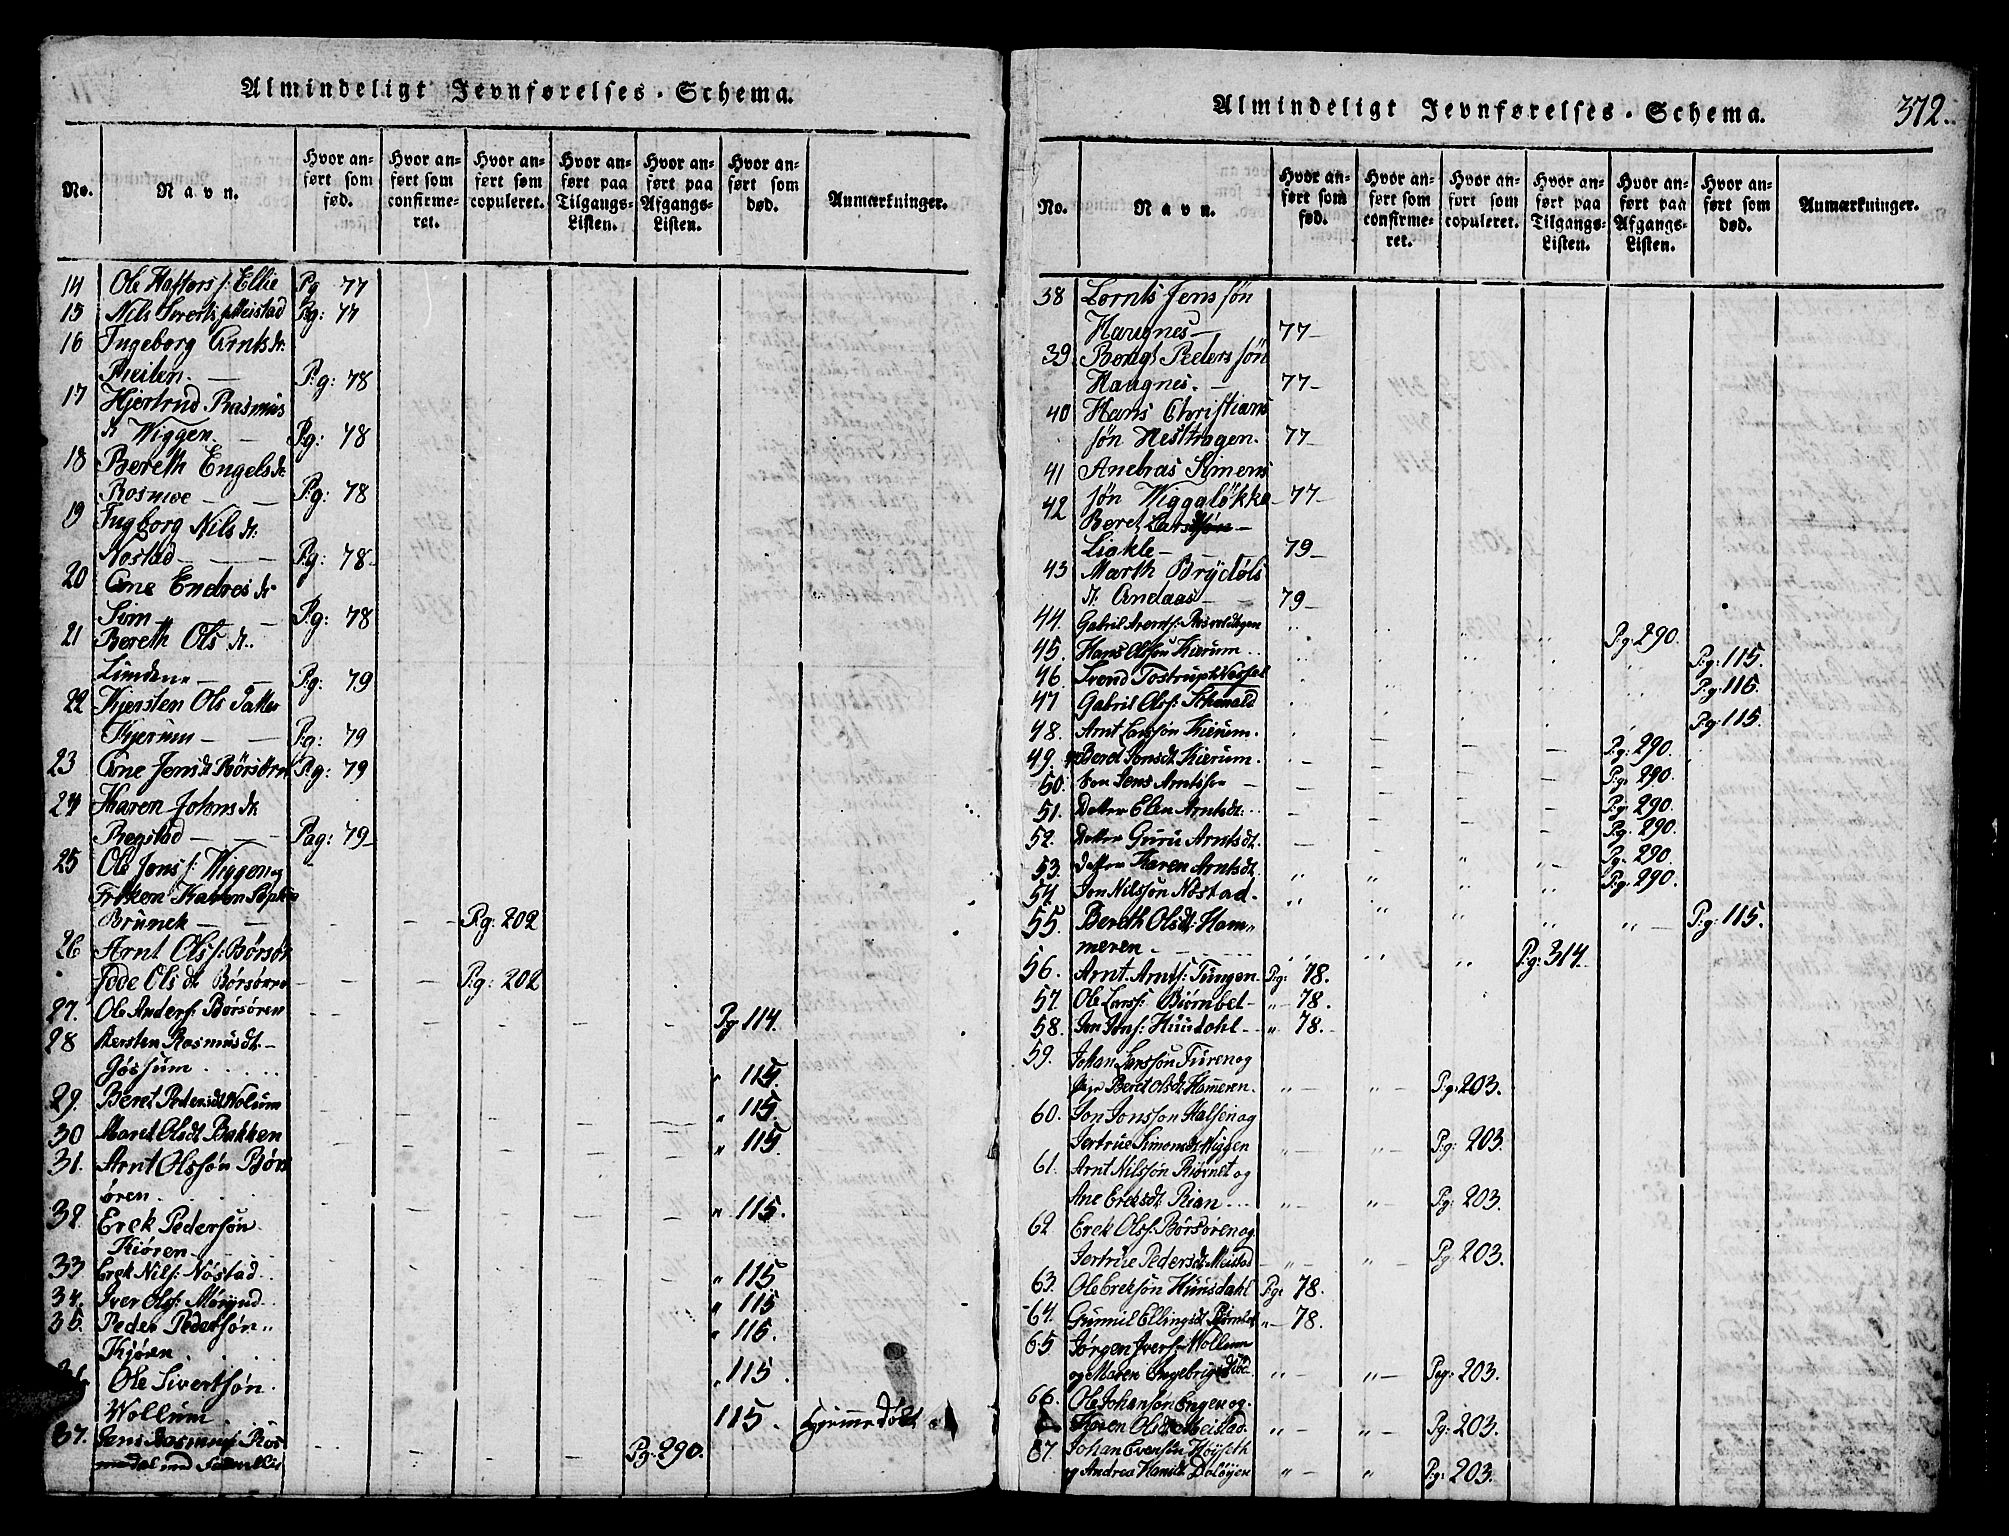 Almindeligt Jevnførelses-Schema.
No. Navn. Hvor anført som fød. Hvor anført som confirmeret. Hvor anført som copuleret. Hvor anført paa Tilgangs-Listen. Hvor anført paa Afgangs-Listen. Hvor anført som død. Anmærkninger.
14 Ole Haftors s: Ellie Pg 77
15 Nils Siverts s: Meistad Pg: 77
16 Ingeborg Arnts dr.
Pg: 78
17 Hjertrud Rasmus
dr Wiggen. Pg: 78
18 Bereth Engels dr
Pg: 78
19 Ingborg Nils dr.
Nostad Pg: 78
20 Ane Endres dr
Sim Pg: 78
21 Bereth Ols dr.
Pg: 79
22 Kjersten Ols
Kjerum Pg: 79
23 Ane Jens dr Børsørn Pg: 79
24 Karen Johns dr
Regstad Pag: 79
25 Ole Jons s: Wiggen og
Frøken Karen
Pg: 202
26 Arnt Ols s: Børsør
Ols dt Børsøren Pg: 202
27. Ole Anders s: Børsøren Pg 114.
28 Kersten Rasmusdt
115.
29. Beret Pedersdt Wolum " 115.
30 Maret Olsdt Bakken " 115.
31. Arnt Olssøn Børs
øren " 115.
32 Erek Pedersøn
Kiøren
33 Erek Nils s: Nøstad " 115
34. Iver Ols s: " 115
35. Peder Pedersøn " 115.
Kjøren
36 Ole Sivertsøn " 115
Wollum 115.
37. Jens Rasmus Ros
Familie Pg: 290.
Almindeligt Jevnførelses-Schema. 372.
No. Navn. Hvor anført som fød. Hvor anført som confirmeret. Hvor anført som copuleret. Hvor anført paa Tilgangs-Listen. Hvor anført paa Afgangs-Listen. Hvor anført som død. Anmærkninger.
38 Lornts Jens søn
Haugnes 77
39 Bengt Peders søn
Haugnes. 77
40 Hans Christians
søn Hesthagen. 77
41 Andras Simens
søn Wiggaløkke 77
42 Beret Lars
Liakle 79
43 Marth
dr. Andaas 79
44. Gabril Arents s: Pg: 290.
45. Hans Olssøn Kierum Pg: 115.
46. Svend Tostrup Wessel Pg: 115.
47 Gabril Ols s: Pg: 115.
48. Arnt Larssøn Kierum. Pg: 290.
49. Beret Jonsdt Kierum. Pg: 290.
50. Søn Jens Arntsøn Pg: 290.
51. Datter Elen Arntsdt. Pg: 290.
52. Datter Guru Arntsdt. Pg: 290.
53. Datter Karen Arntsdt Pg: 290.
54. Jon Nilssøn Nøstad. Pg: 115.
55. Bereth Olsdt: Ham-
meren Pg: 314
56. Arnt Arnts s: Tungen Pg: 78.
57. Ole Lars s: Biørnbet " 78.
58. Jon Jons s: Hundahl " 78.
59. Johan Larssøn Turen og
Pige Beret Olsdt Hameren Pg: 203.
60. Jon Jonssøn Halsen og
Jertrue Simonsdt Wiggen Pg: 203.
61. Arnt Nilssøn Biørnet og
Ane Ereksdt Rian Pg: 203
62 Erek Ols s: Børsøren og
Jertrüe Pedersdt Meistad Pg. 203.
63. Ole Ereksøn Hunsdahl Pg: 78.
64. Gunnil Ellingsdt Biørnbet " 78.
65 Jørgen Ivers s: Wollum
og Maren Pg: 203.
66. Ole Johansøn Engen og
Karen Olsdt Meistad. Pg: 203.
67. Johan Evensøn Høyseth
og Andrea Hansdt Pg: 203.